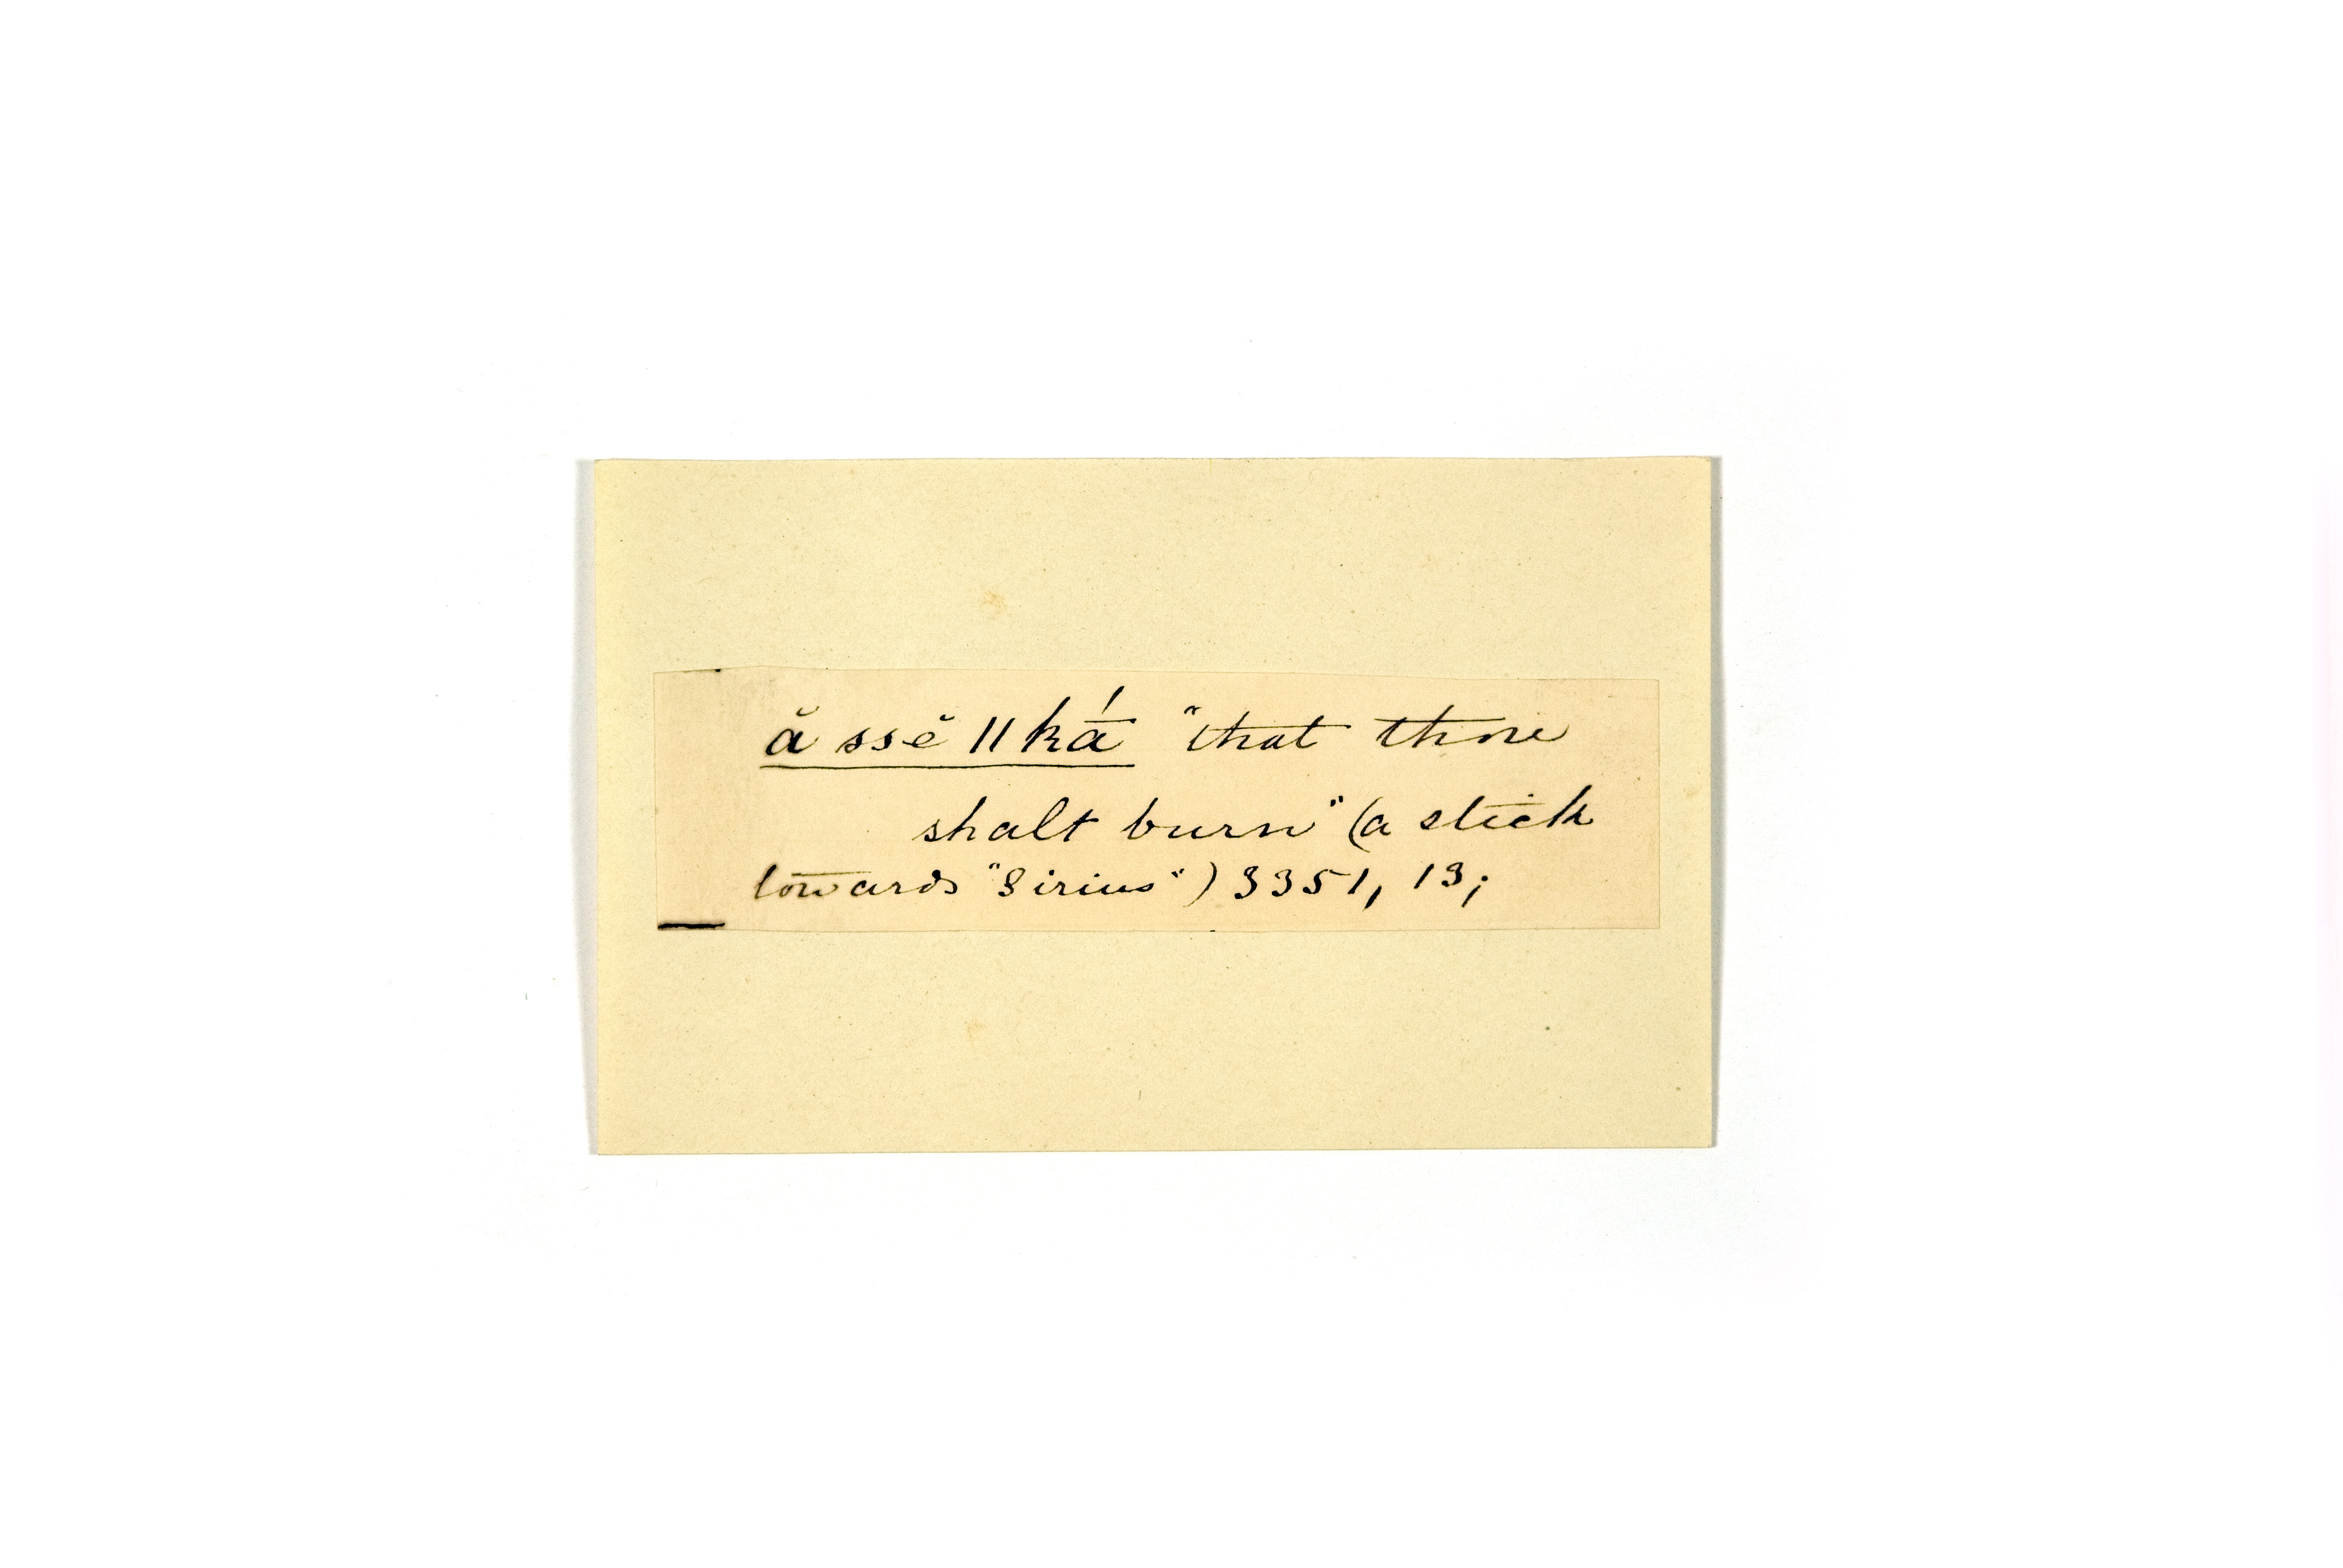 ă ssĕ ǁká̄ "that thou
shalt burn" (a stick
towards "Sirius") 3351, 13;